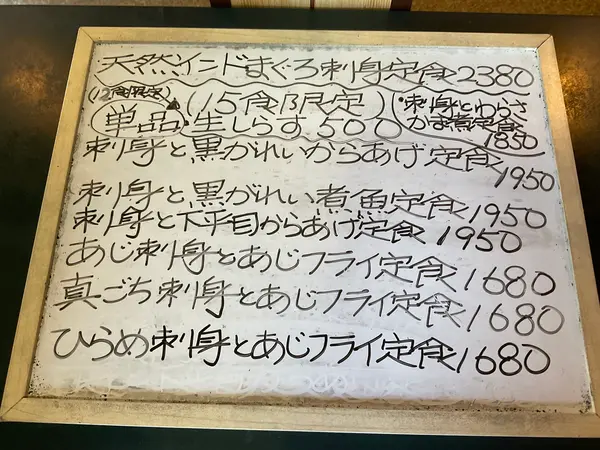 天然インドまぐろ刺身定食2380
(12食限定)
単品 (15食限定)
生しらす500
・刺身とわらさ
かま煮定食
1850
刺身と黒がれいからあげ定食
1950
刺身と黒がれい煮魚定食1950
刺身と下平目からあげ定食 1950
あじ刺身とあじフライ定食1680
真ごち刺身とあじフライ定食1680
ひらめ刺身とあじフライ定食1680